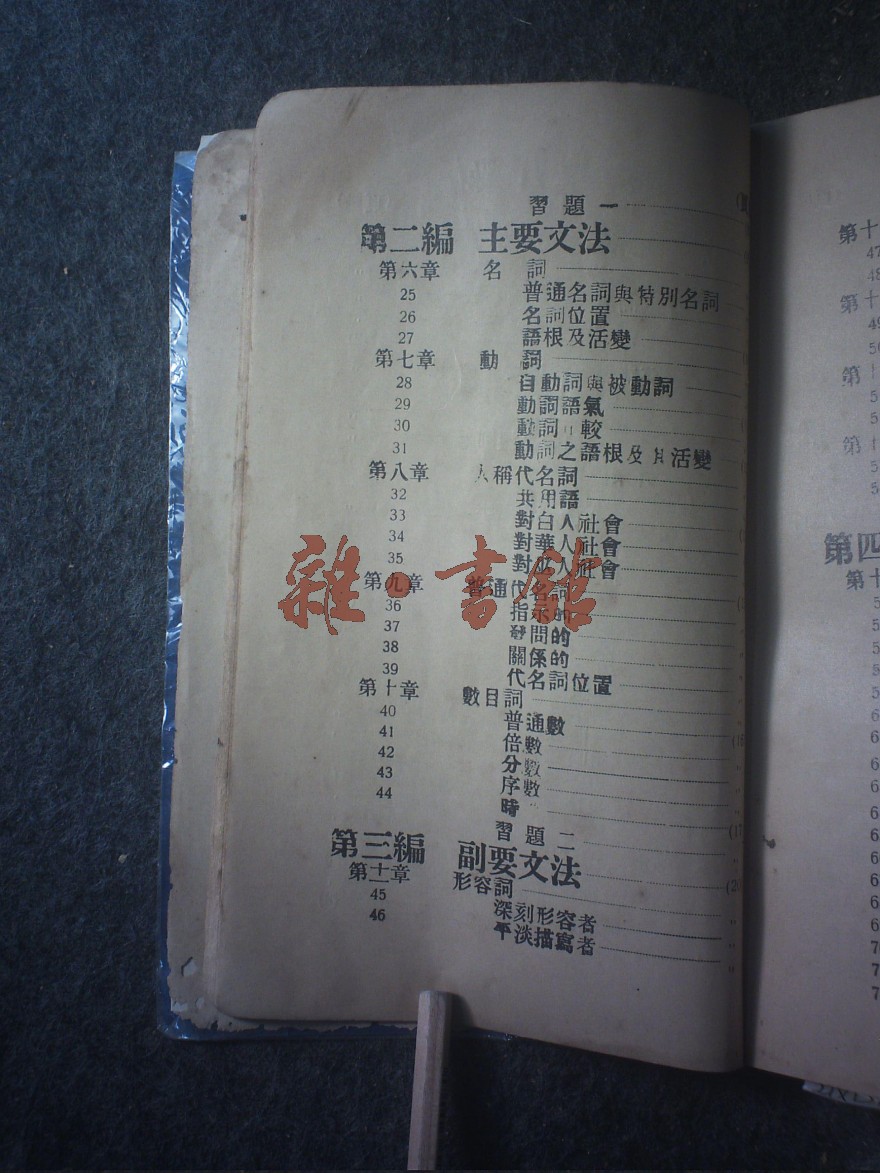 習題一
第二編 主要文法
第六章 名詞
25 普通名詞與特別名詞
26 名詞位置
27 語根及活變
第七章 動詞
28 自動詞與被動詞
29 動詞語氣
30 動詞 較
31 動詞之語根及其活變
第八章 人稱代名詞
32 共用語
33 對白人社會
34 對華人社會
35 對 人社會
第九章 普通代名詞
36 指示的
37 發問的
38 關係的
39 代名詞位置
第十章 數目詞
40 普通數
41 倍數
42 分數
43 序數
44 時
習題二
第三編 副要文法
第十一章 形容詞
45 深刻形容者
46 平淡描寫者
雜·書館
第十
47
48
第十
49
第四
第十